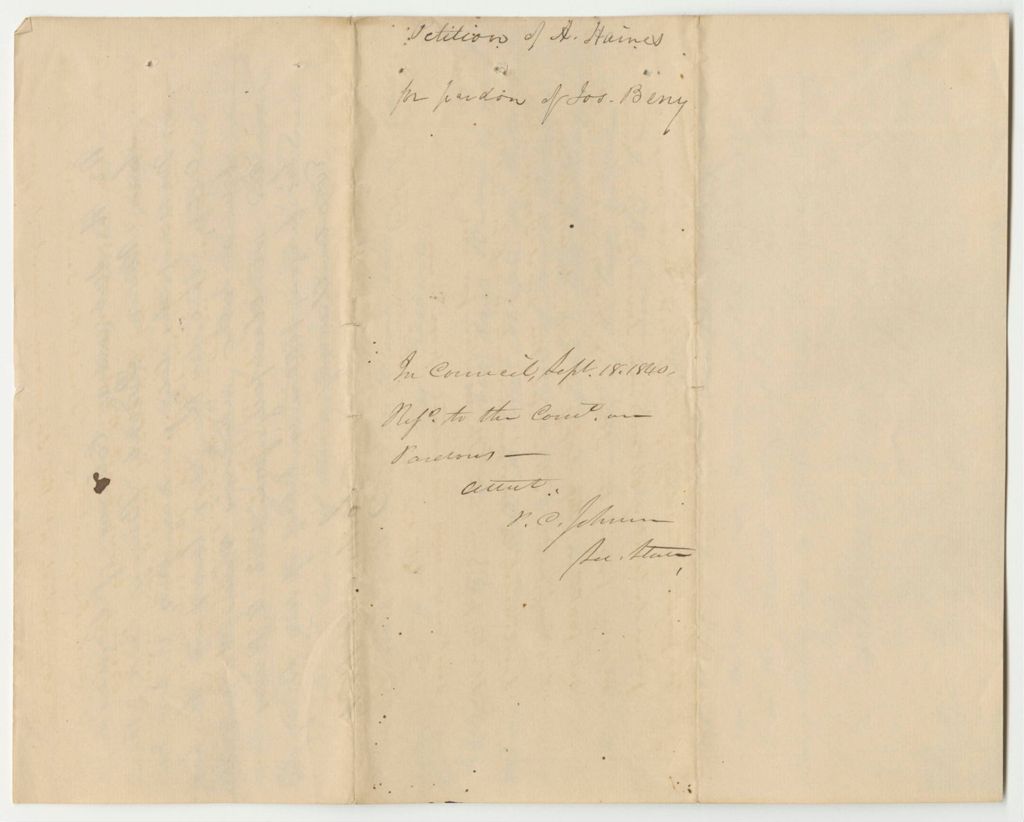 Petition of A. Haines
for pardon of Jos. Berry
In Council, Sept. 18. 1840.
Refd. to the Comt. on
Pardons —
Attest.
P. C. Johnson
Sec. State,